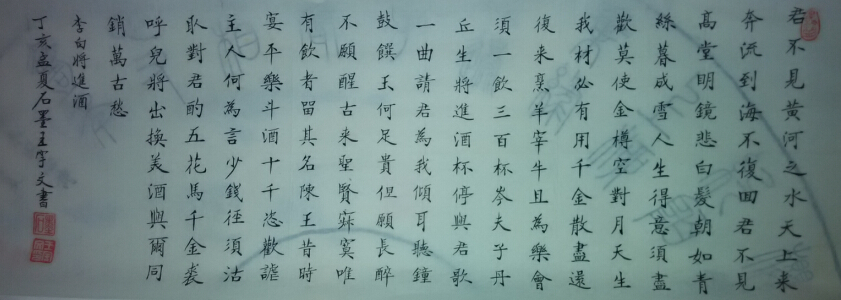 君不見黃河之水天上来
奔流到海不復回君不見
高堂明鏡悲白髮朝如青
絲暮成雪人生得意須盡
歡莫使金樽空對月天生
我材必有用千金散盡還
復来烹羊宰牛且為樂會
須一飲三百杯岑夫子丹
丘生將進酒杯停與君歌
一曲請君為我傾耳聽鐘
鼓饌玉何足貴但願長醉
不願醒古来聖賢寂寞唯
有飲者留其名陳王昔時
宴平樂斗酒十千恣歡謔
主人何為言少錢径須沽
取對君酌五花馬千金裘
呼兒將出換美酒與爾同
銷萬古愁
李白將進酒
丁亥孟夏石墨王宇文書